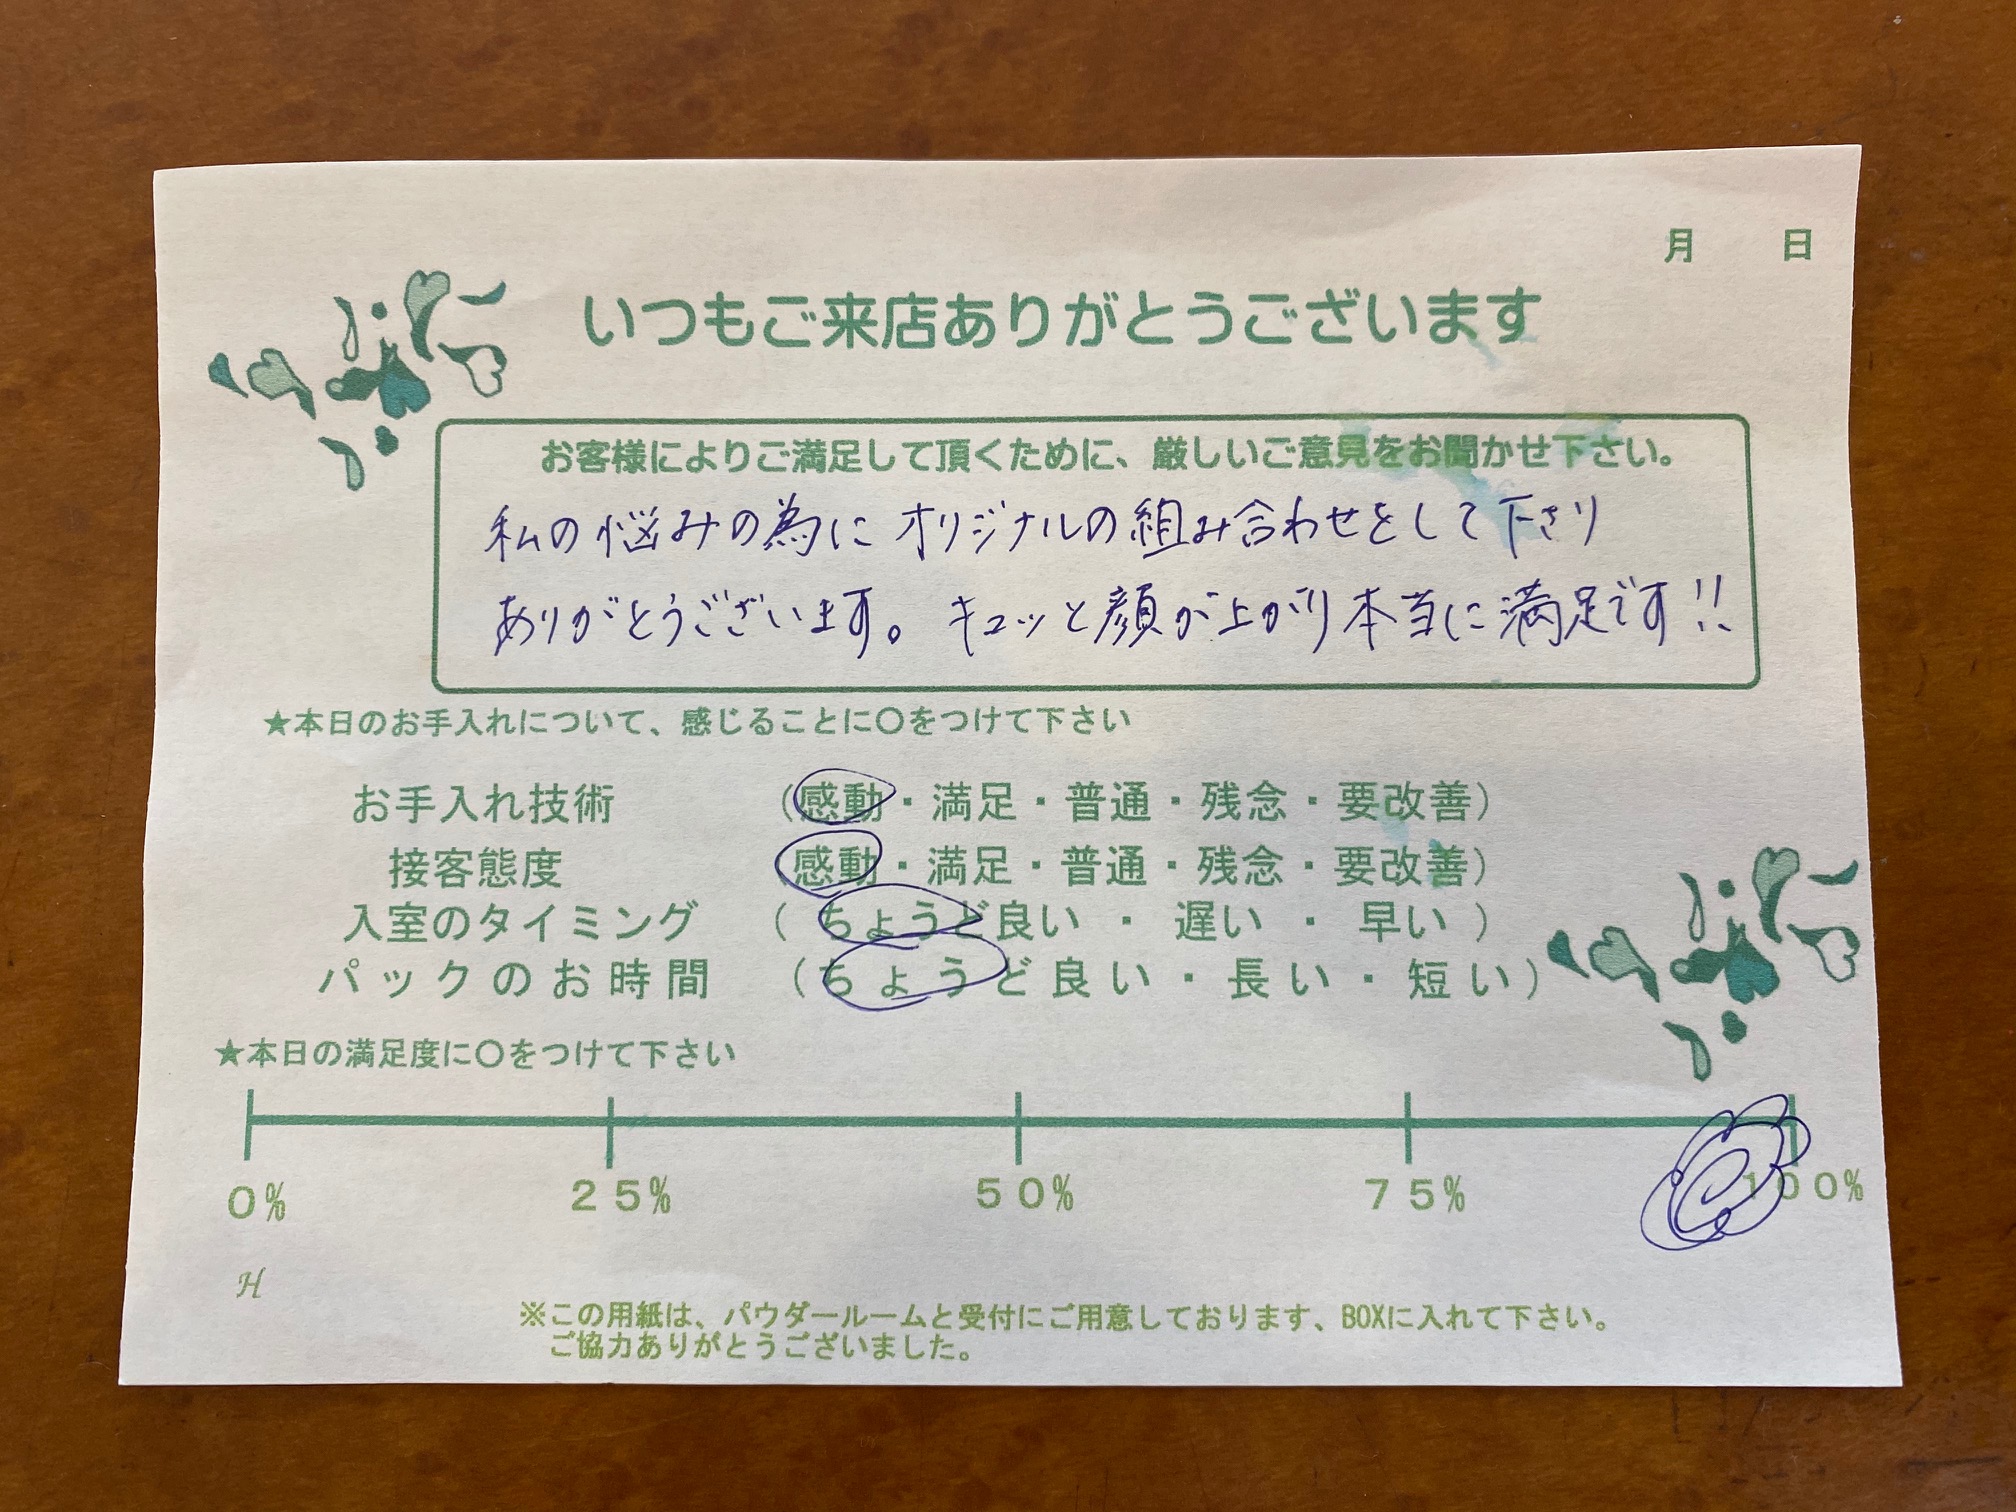 月 日
いつもご来店ありがとうございます
お客様によりご満足して頂くために、厳しいご意見をお聞かせ下さい。
私の悩みの為に オリジナルの組み合わせをして下さり
ありがとうございます。 キュッと顔が上がり本当に満足です!!
★本日のお手入れについて、感じることに〇をつけて下さい
お手入れ技術 (感動・満足・普通・残念・要改善)
接客態度 (感動・満足・普通・残念・要改善)
入室のタイミング ( ちょうど良い ・ 遅い ・ 早い )
パックのお時間 (ちょうど良い・長い・短い)
★本日の満足度に〇をつけて下さい
0% 25% 50% 75% 100%
H
※この用紙は、パウダールームと受付にご用意しております、BOXに入れて下さい。
ご協力ありがとうございました。